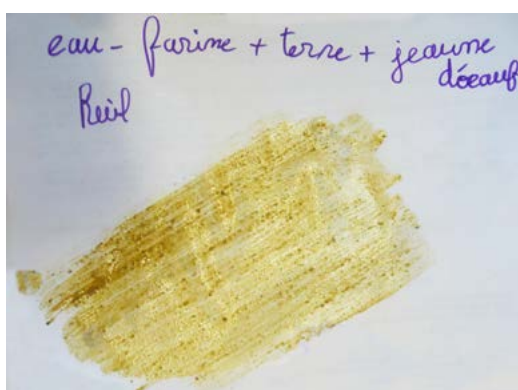 eau - farine + terre + jeaune
d'oeauf